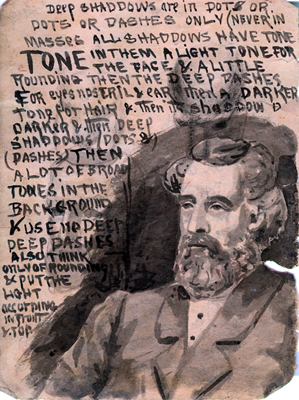 DEEP SHADDOWS are in DOTS OR
DOTS OR DASHES ONLY (NEVER IN
MASSES ALL SHADDOWS HAVE TONE
TONE IN THEM A LIGHT TONE FOR
THE FACE & A LITTLE
ROUNDING THEN THE DEEP DASHES
FOR eyes NOSTRIL & EAR then A DARKER
TONE FOR HAIR & then its shaddow
DARKER & then DEEP
SHADDOWS (DOTS &
(DASHES) THEN
A LOT OF BROAD
TONES IN THE
BACKGROUND
& USE NO DEEP
DEEP DASHES
ALSO THINK
ONLY OF ROUNDING
& PUT THE
LIGHT
ACCORDING
IN FRONT
& TOP